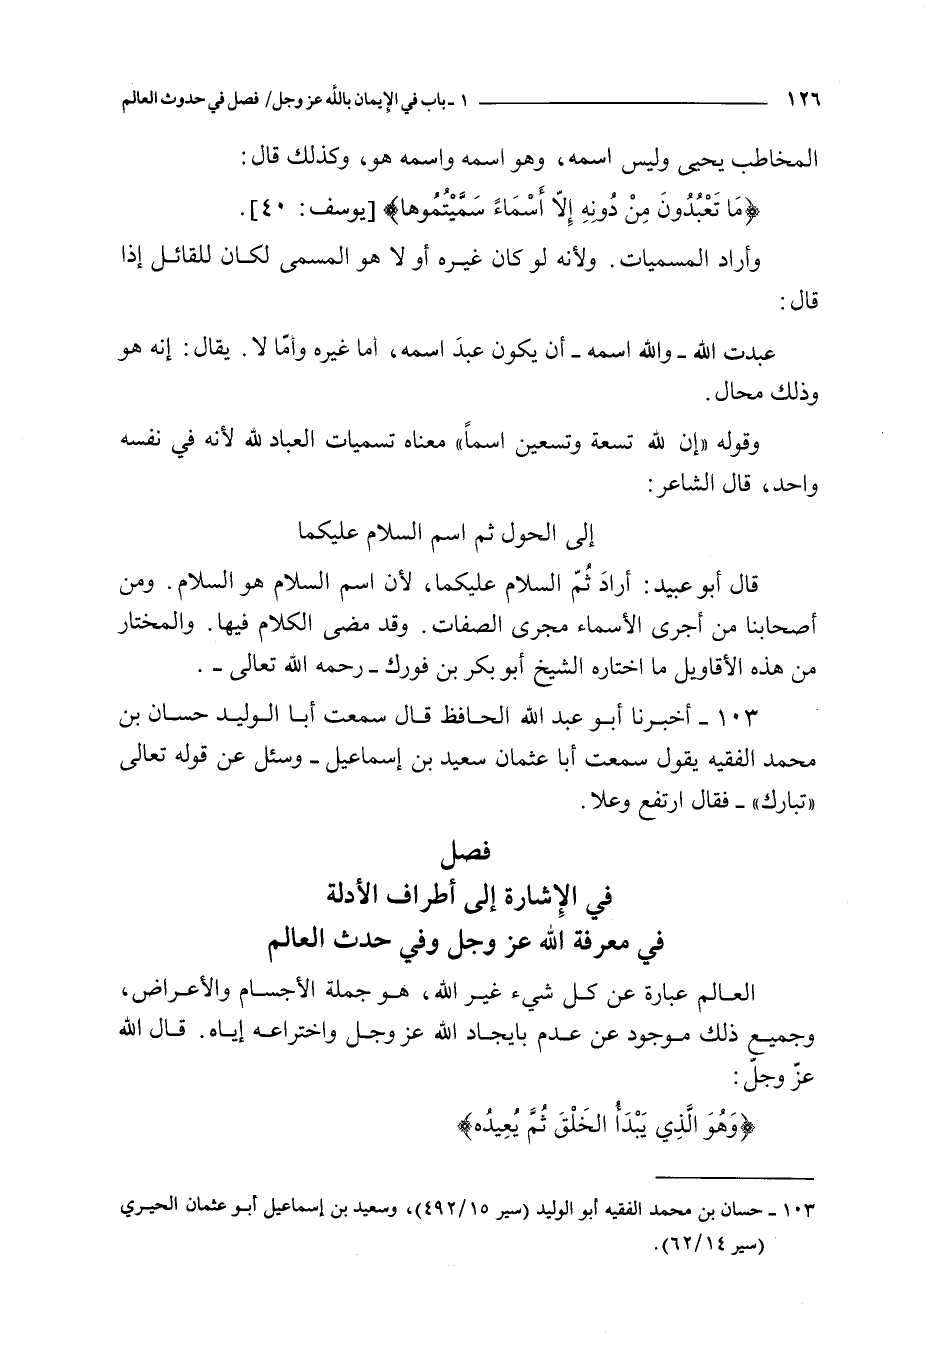 ١٢٦ ١ ـ باب في الإيمان بالله عز وجل/ فصل في حدوث العالم
المخاطب يحيى وليس اسمه، وهو اسمه واسمه هو، وكذلك قال:
﴿مَا تَعْبُدُونَ مِنْ دُونِهِ إِلاّ أَسْمَاءً سَمَّيْتُمُوها﴾ [يوسف: ٤٠].
وأراد المسميات. ولأنه لو كان غيره أو لا هو المسمى لكان للقائل إذا
قال:
عبدت الله ـ والله اسمه ـ أن يكون عبدَ اسمه، أما غيره وأمّا لا. يقال: إنه هو
وذلك محال.
وقوله «إن لله تسعة وتسعين اسماً» معناه تسميات العباد لله لأنه في نفسه
واحد، قال الشاعر:
إلى الحول ثم اسم السلام عليكما
قال أبو عبيد: أرادَ ثُمّ السلام عليكما، لأن اسم السلام هو السلام. ومن
أصحابنا من أجرى الأسماء مجرى الصفات. وقد مضى الكلام فيها. والمختار
من هذه الأقاويل ما اختاره الشيخ أبو بكر بن فورك ـ رحمه الله تعالى ـ .
١٠٣ ـ أخبرنا أبو عبد الله الحافظ قال سمعت أبا الوليد حسان بن
محمد الفقيه يقول سمعت أبا عثمان سعيد بن إسماعيل ـ وسئل عن قوله تعالى
«تبارك» ـ فقال ارتفع وعلا.
فصل
في الإشارة إلى أطراف الأدلة
في معرفة الله عز وجل وفي حدث العالم
العالم عبارة عن كل شيء غير الله، هو جملة الأجسام والأعراض،
وجميع ذلك موجود عن عدم بايجاد الله عز وجل واختراعه إياه. قال الله
عزّ وجلّ:
﴿وَهُوَ الَّذِي يَبْدَأُ الخَلْقَ ثُمَّ يُعِيدُه﴾
١٠٣ ـ حسان بن محمد الفقيه أبو الوليد (سير ٤٩٢/١٥)، وسعيد بن إسماعيل أبو عثمان الحيري
(سير ٦٢/١٤).